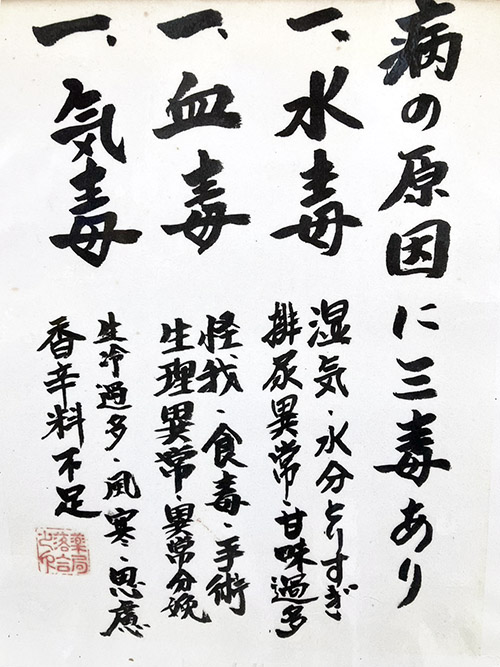 病の原因に三毒あり
一、水毒
湿気・水分とりすぎ
排尿異常・甘味過多
一、血毒
怪我・食毒・手術
生理異常・異常分娩
一、気毒
生冷過多・風寒・思慮
香辛料不足